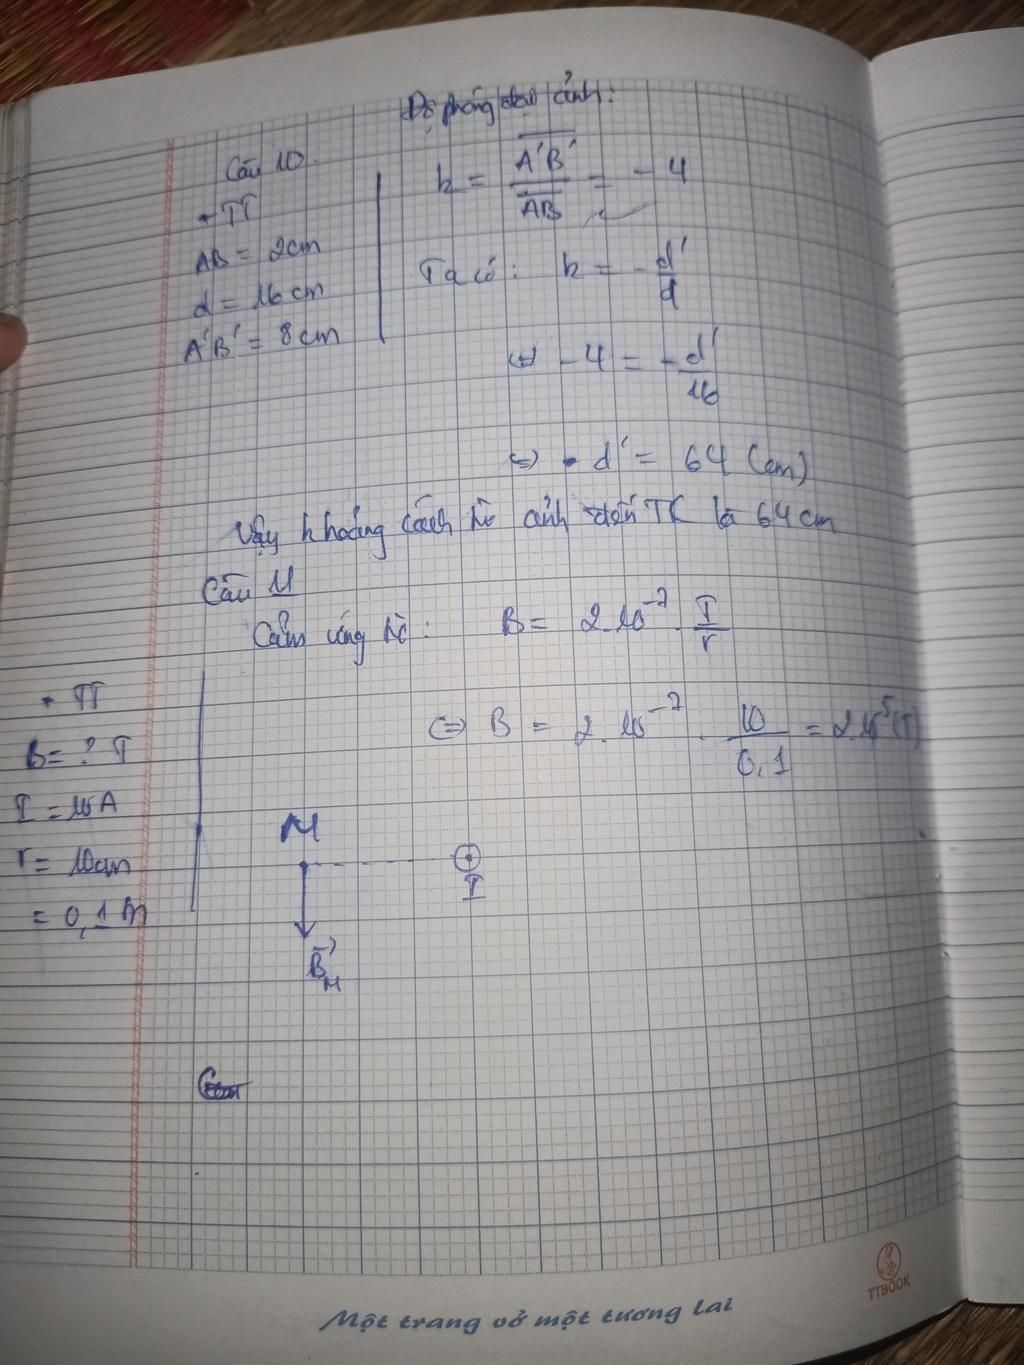 Độ phóng đại ảnh:
Câu 10
+ TT
AB = 2cm
d = 16 cm
A'B' = 8 cm
k = A'B' / AB = - 4
Ta có: k = - d' / d
⇔ - 4 = - d' / 16
⇔ d' = 64 (cm)
Vậy khoảng cách từ ảnh đến TK là 64 cm
Câu 11
Cảm ứng từ: B = 2.10⁻⁷ . I / r
+ TT
B = ? T
I = 10 A
r = 10cm
= 0,1 m
⇔ B = 2.10⁻⁷ . 10 / 0,1 = 2.10⁵ (T)
M
I
B⃗M
Một trang vở một tương lai
TTBOOK